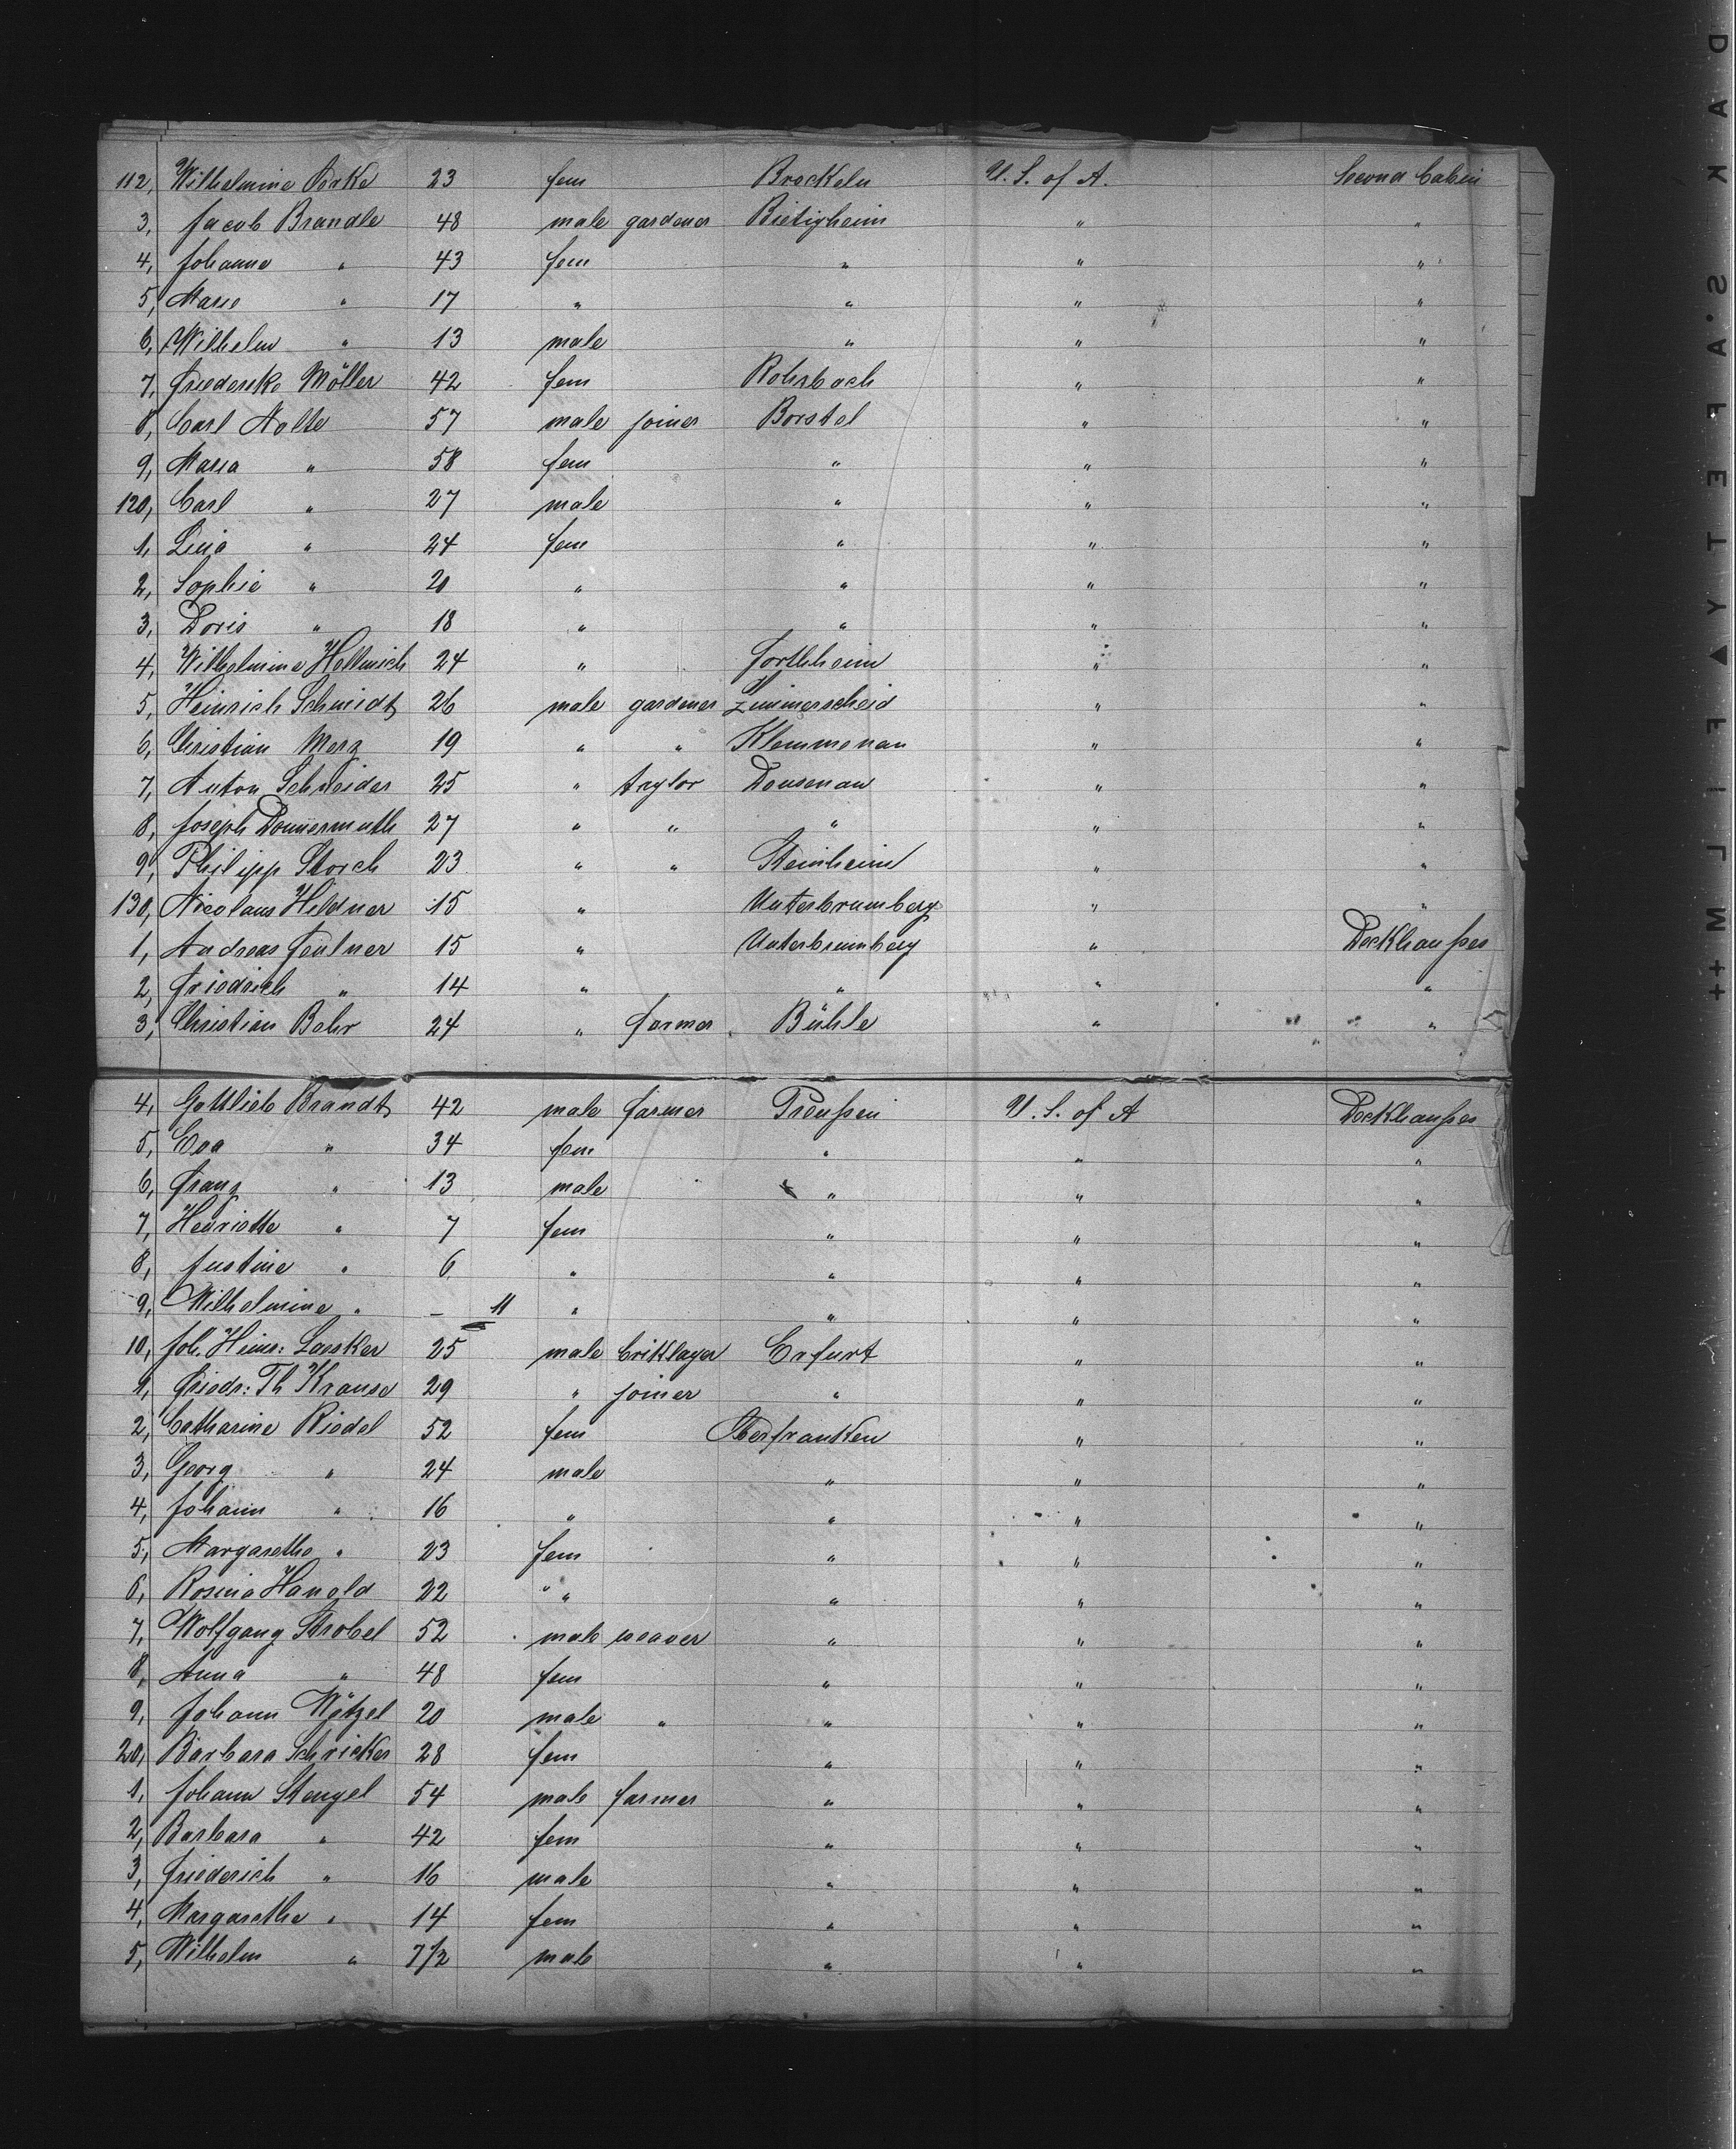 112, Wilhelmine Porke 23 fem Brockeln U. S. of A. Second Cabin
3, Jacob Brandle 48 male gardener Bietigheim " "
4, Johanna " 43 fem " " "
5, Marie " 17 " " " "
6, Wilhelm " 13 male " " "
7, Friederike Möller 42 fem Rohrbach " "
8, Carl Nolte 57 male joiner Borstel " "
9, Maria " 58 fem " " "
120, Carl " 27 male " " "
1, Lina " 24 fem " " "
2, Sophie " 20 " " " "
3, Doris " 18 " " " "
4, Wilhelmine Hellmich 24 " Forthheim " "
5, Heinrich Schmidt 26 male gardener Zimmerscheid " "
6, Christian Merz 19 " " Klemmenau " "
7, Anton Schneider 25 " taylor Dausenau " "
8, Joseph Donnermuth 27 " " " " "
9, Philipp Storch 23 " " Steinheim " "
130, Nicolaus Hildner 15 " Unterbrumberg " "
1, Andreas Feulner 15 " Unterbrumberg " Deckhauses
2, Friedrich " 14 " " " "
3, Christian Behr 24 " farmer Bühle " "
4, Gottlieb Brandt 42 male farmer Preußen U. S. of A Deckhauses
5, Eva " 34 fem " " "
6, Franz " 13 male " " "
7, Henriette " 7 fem " " "
8, Justine " 6 " " " "
9, Wilhelmine " – 11 " " " "
10, Joh. Heinr: Laesker 25 male briklayer Erfurt " "
1, Friedr: Th Krause 29 " joiner " " "
2, Catharine Riedel 52 fem Oberfranken " "
3, Georg " 24 male " " "
4, Johann " 16 " " " "
5, Margarethe " 23 fem " " "
6, Rosina Hanold 22 " " " " "
7, Wolfgang Strobel 52 male weaver " " "
8, Anna " 48 fem " " "
9, Johann Wötzel 20 male " " " "
20, Barbara Schricker 28 fem " " "
1, Johann Stengel 54 male farmer " " "
2, Barbara " 42 fem " " "
3, Friederich " 16 male " " "
4, Margarethe " 14 fem " " "
5, Wilhelm " 7 1/2 male " " "
DAK.S.A.FETY▲FILM+